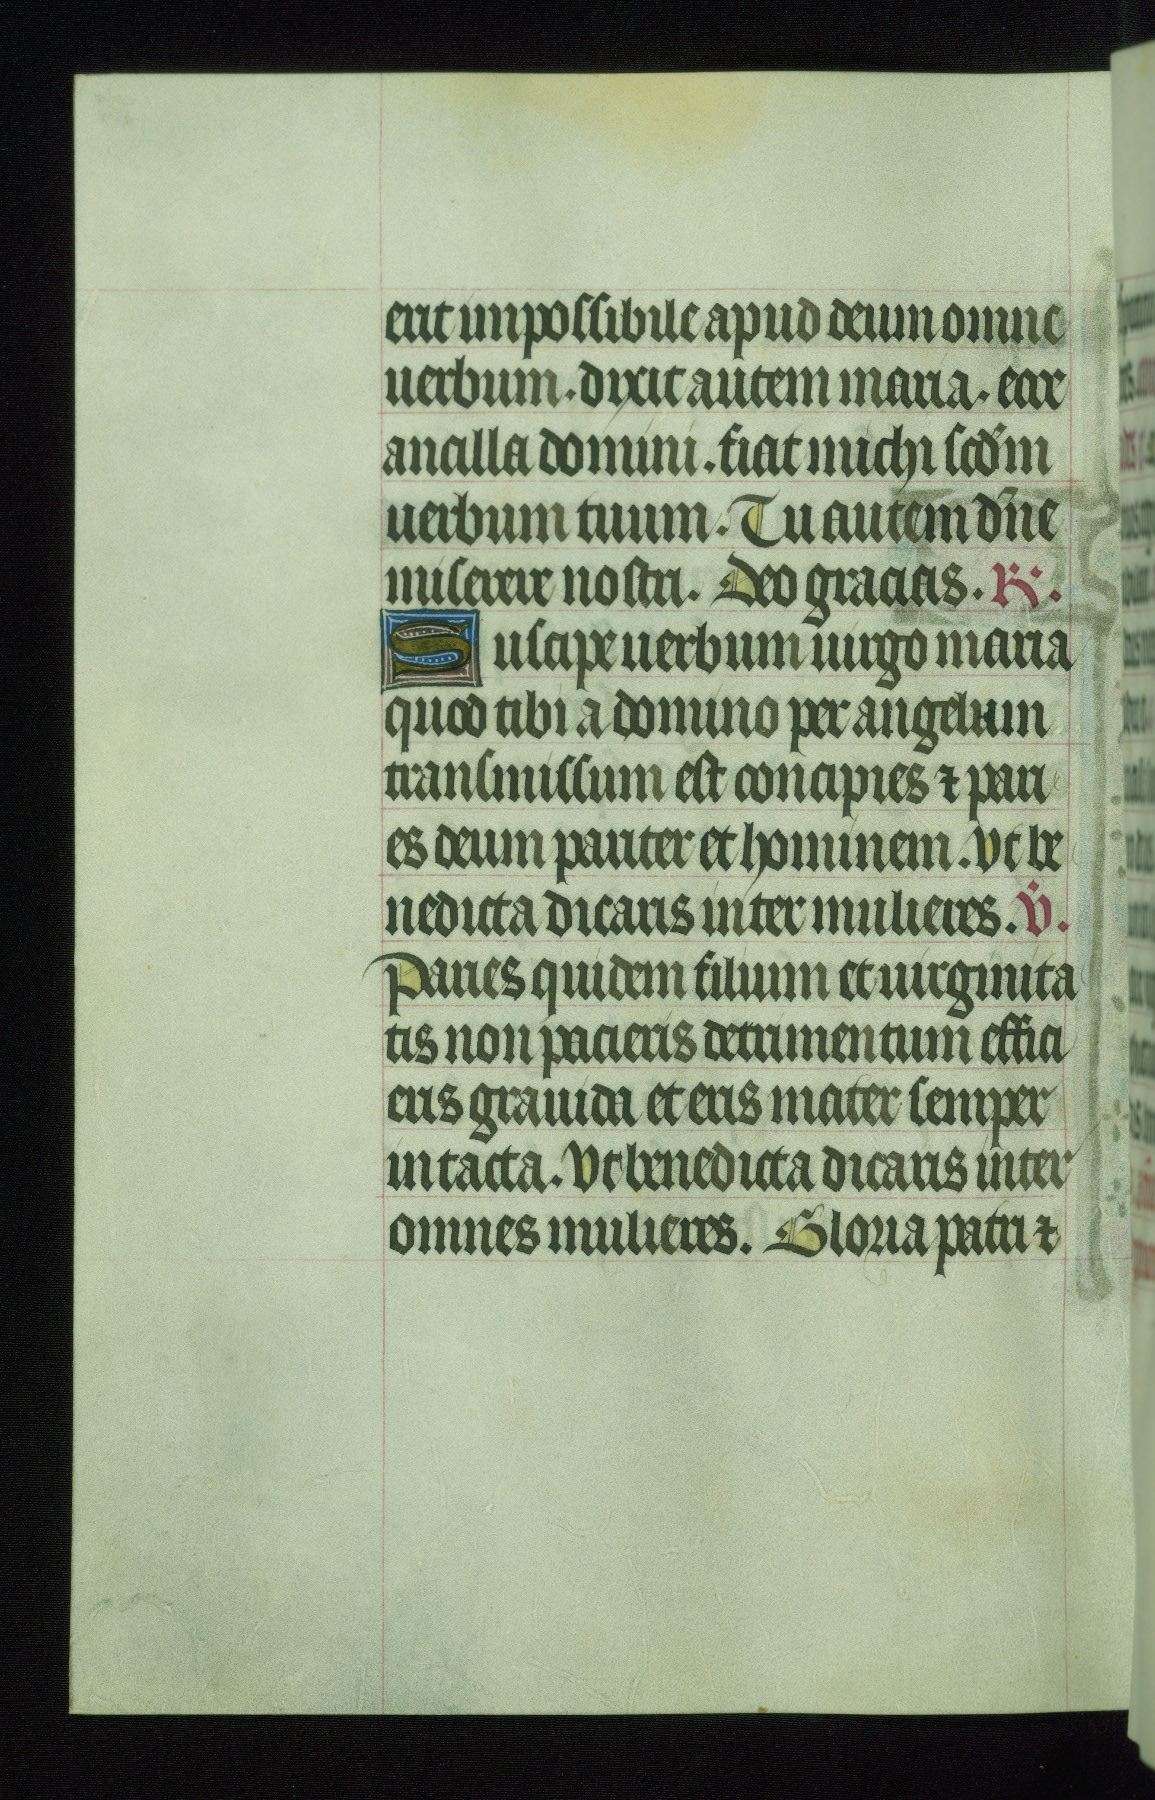 erit impossibile apud deum omne
uerbum. dixit autem maria. ecce
ancilla domini. fiat michi scd̄m
uerbum tuum. Tu autem dn̄e
miserere nostri. Deo gracias. R̃.
Suscipe uerbum uirgo maria
quod tibi a domino per angelum
transmissum est concipies ⁊ pari
es deum pariter et hominem. Vt be
nedicta dicaris inter mulieres. V̄.
Paries quidem filium et uirginita
tis non pacieris detrimentum effici
eris grauida et eris mater semper
intacta. Vt benedicta dicaris inter
omnes mulieres. Gloria patri ⁊